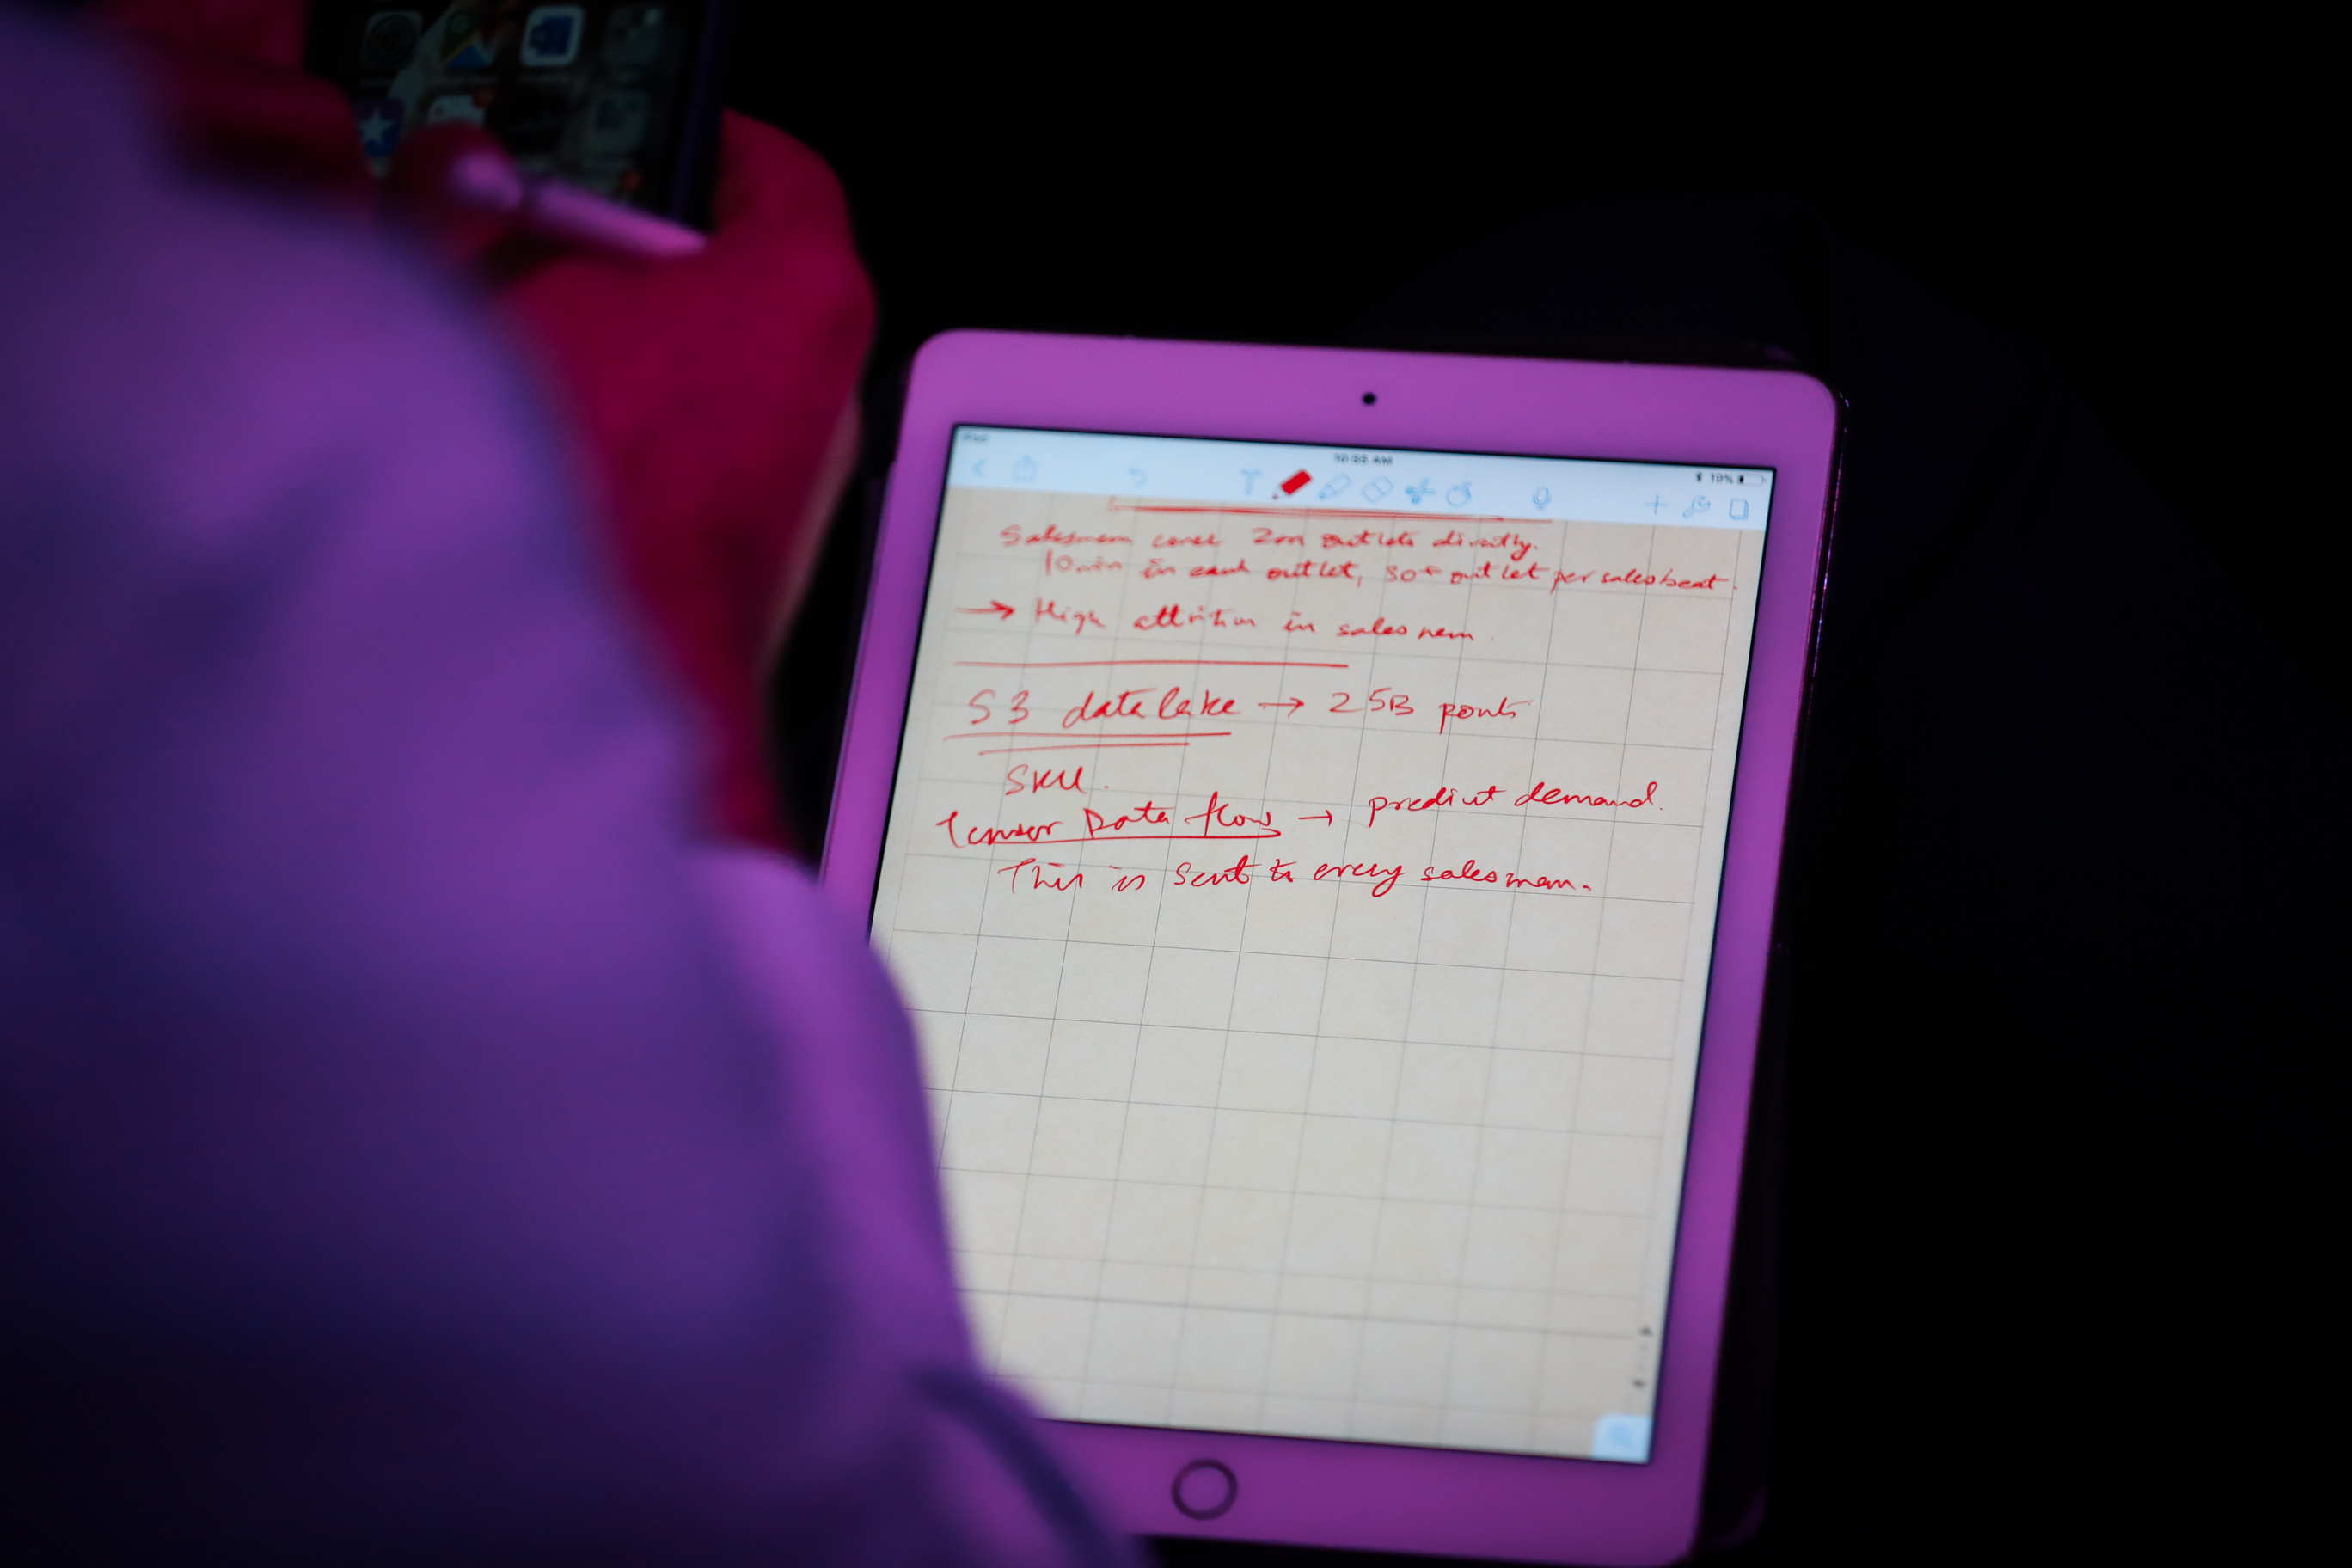 iPad
10:55 AM
10%
T
Salesmem cover 2m outlets directly.
10min in each outlet, 30+ outlet per sales beat.
→ High attrition in salesmem
S3 data lake → 25B ponts
SKU.
Tensor Data flow → predict demand.
This is sent to every salesman.